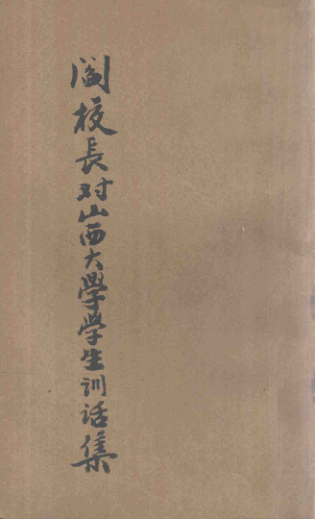 阎校長对山西大學學生训话集